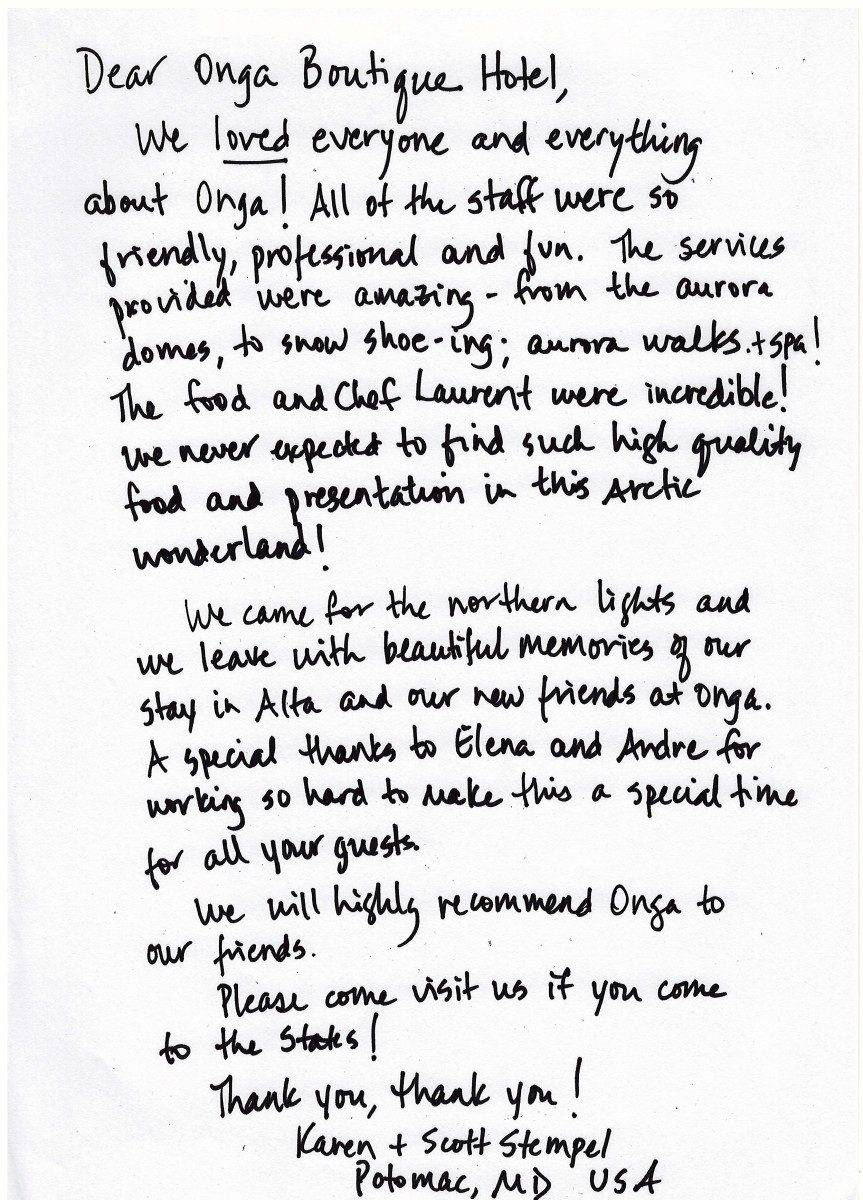 Dear Onga Boutique Hotel,
We loved everyone and everything
about Onga! All of the staff were so
friendly, professional and fun. The services
provided were amazing - from the aurora
domes, to snow shoe-ing; aurora walks.+spa!
The food and Chef Laurent were incredible!
We never expected to find such high quality
food and presentation in this Arctic
wonderland!
We came for the northern lights and
we leave with beautiful memories of our
stay in Alta and our new friends at Onga.
A special thanks to Elena and Andre for
working so hard to make this a special time
for all your guests.
We will highly recommend Onga to
our friends.
Please come visit us if you come
to the States!
Thank you, thank you!
Karen + Scott Stempel
Potomac, MD USA